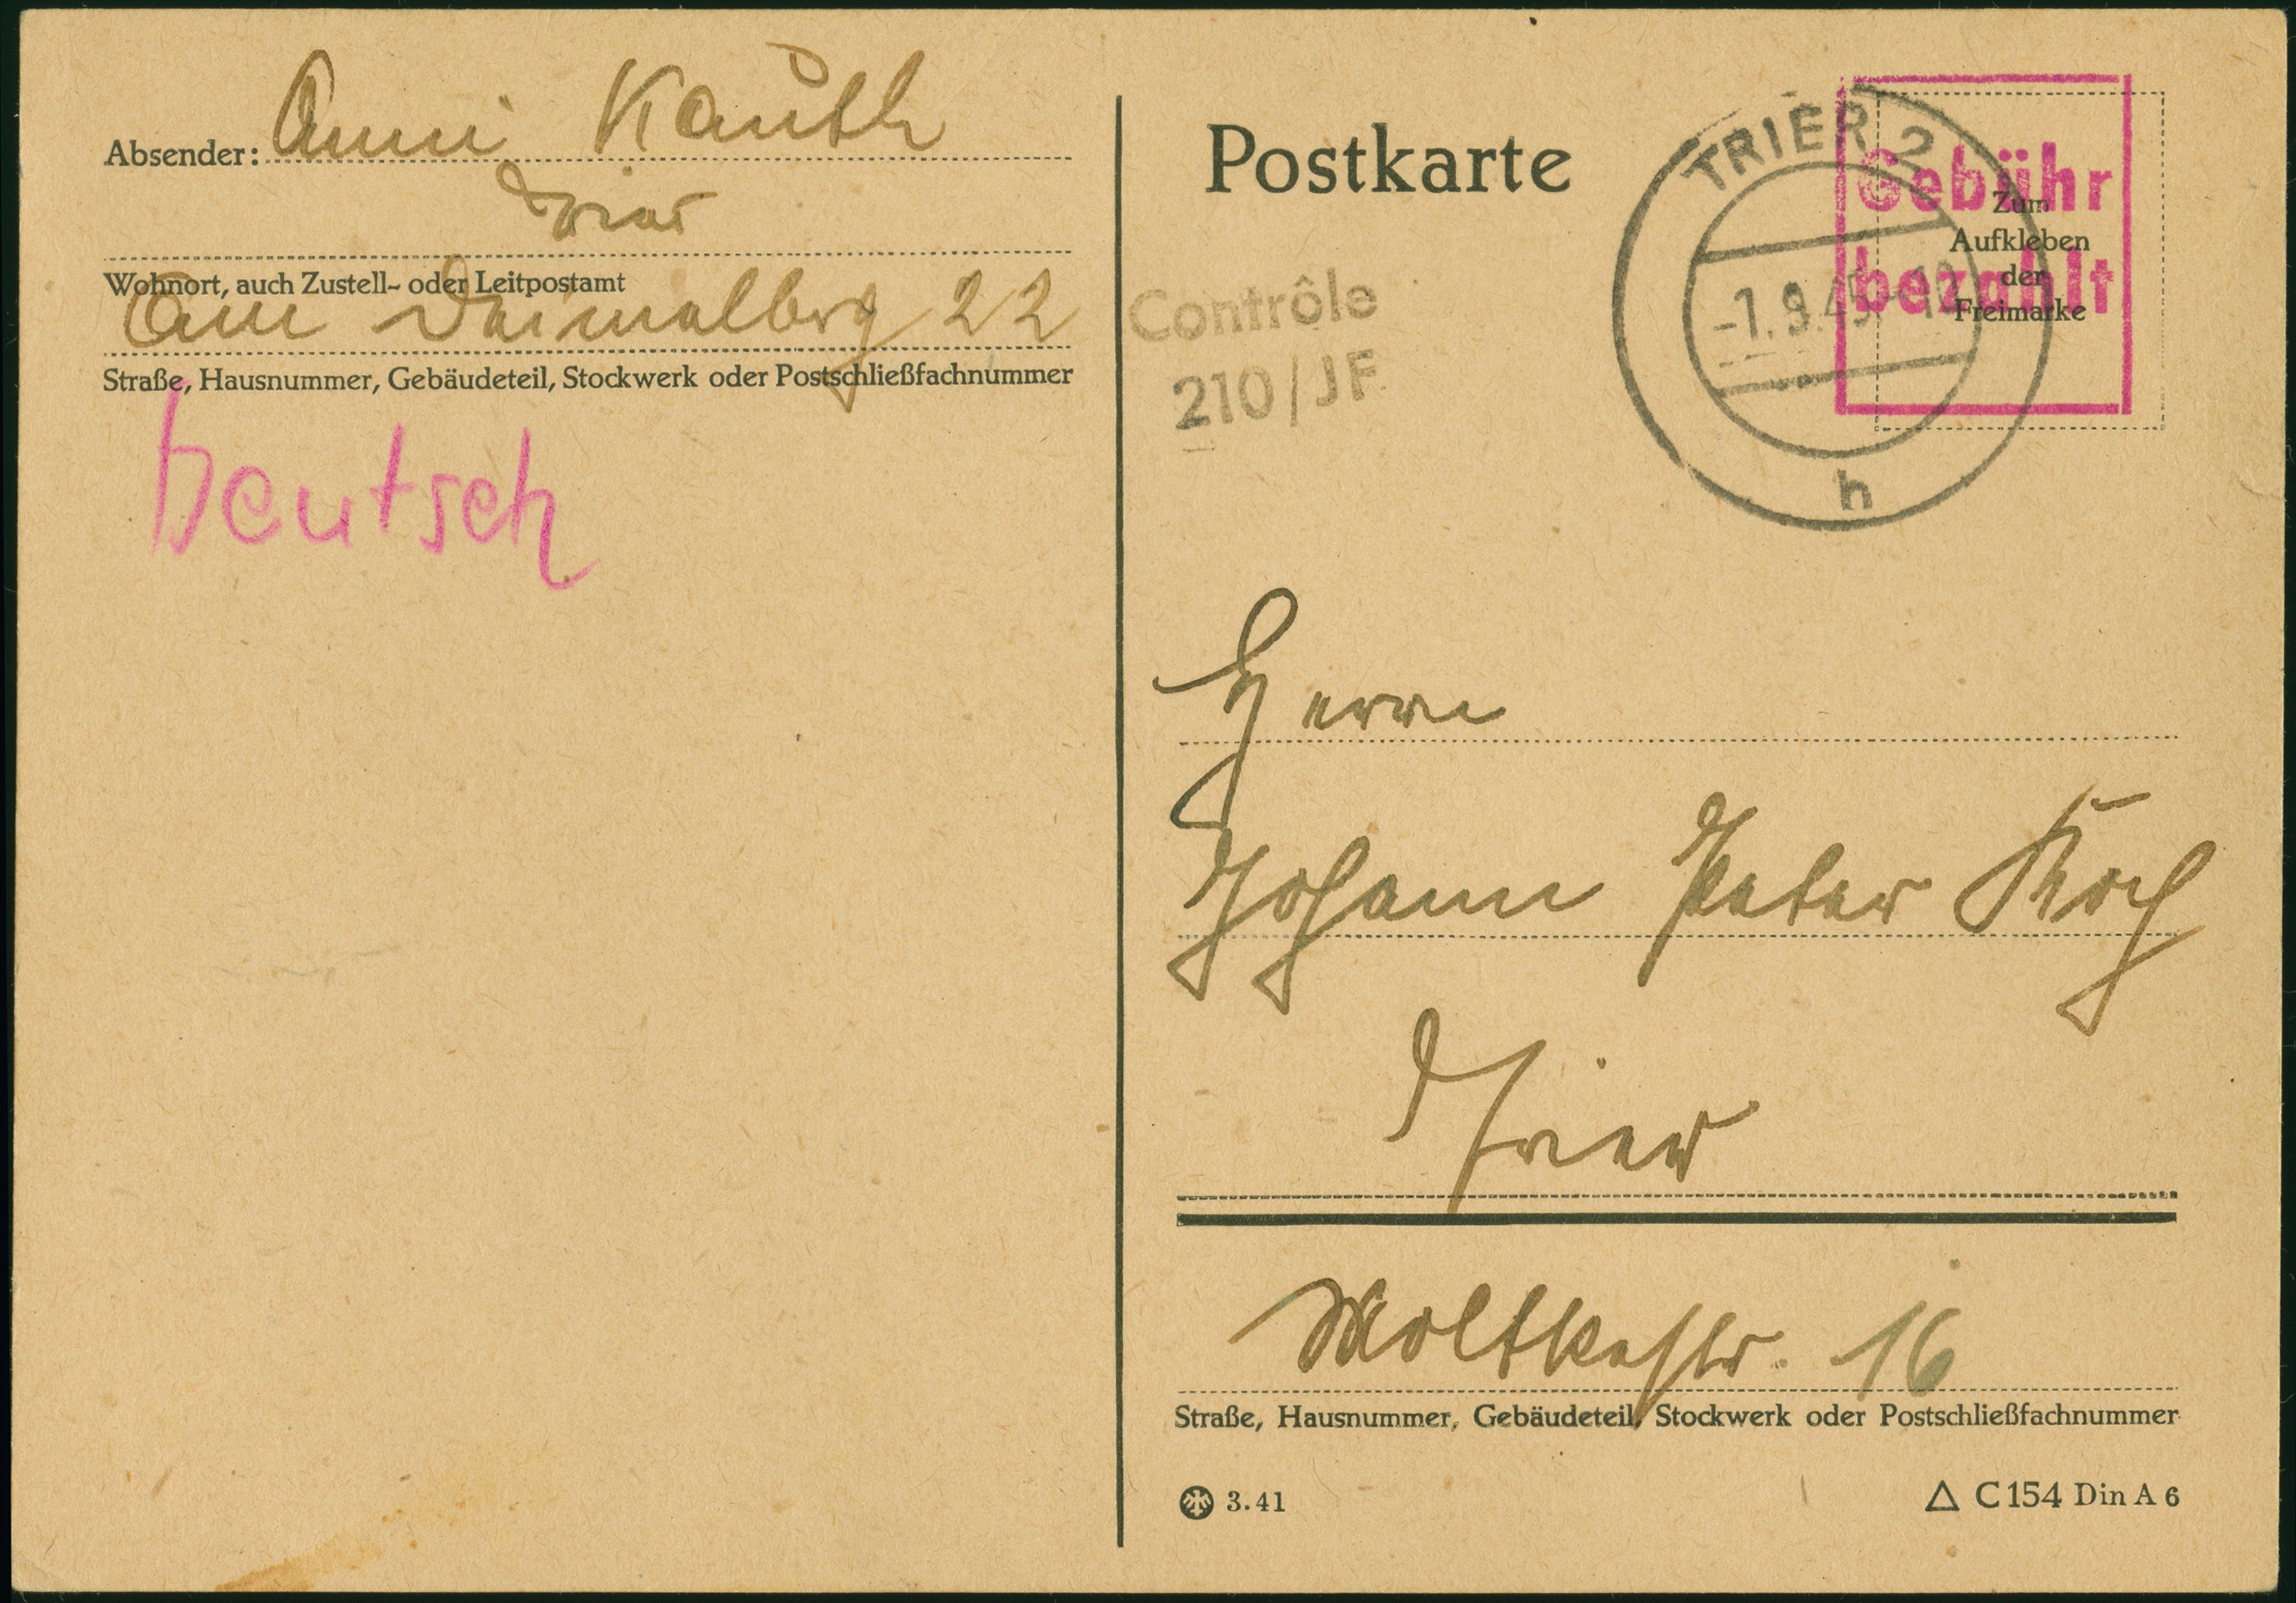 Absender: Anni Kauth
Trier
Wohnort, auch Zustell- oder Leitpostamt
Am Deimelberg 22
Straße, Hausnummer, Gebäudeteil, Stockwerk oder Postschließfachnummer
Deutsch
Postkarte
Contrôle
210/JF
TRIER 2
-1.9.45
h
Gebühr
bezahlt
Zum
Aufkleben
der
Freimarke
Herrn
Johann Peter Koch
Trier
Moltkestr. 16
Straße, Hausnummer, Gebäudeteil, Stockwerk oder Postschließfachnummer
3.41
C 154 Din A 6